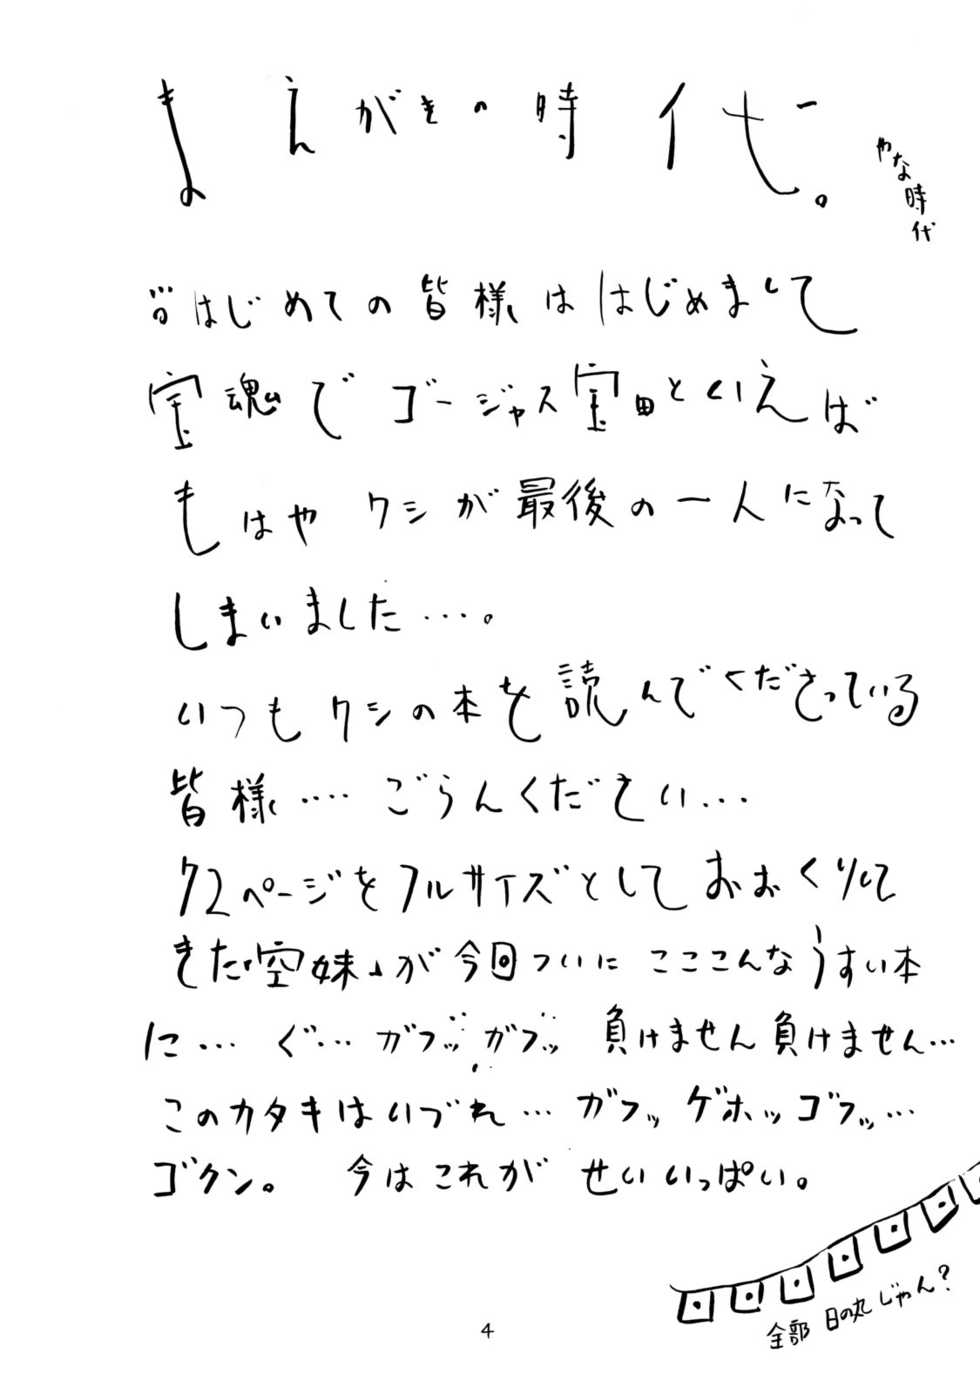 まえがきの時代。
やな時代
はじめての皆様ははじめまして
宝魂でゴージャス宝田といえば
もはやワシが最後の一人になって
しまいました…。
いつもワシの本を読んでくださっている
皆様‥‥ごらんください…
72ページをフルサイズとしておおくりして
きた「空妹」が今回ついにこここんなうすい本
に…ぐ…ガフッガフッ 負けません負けません…
このカタキはいづれ…ガフッゲホッゴフッ…
ゴクン。 今はこれがせいいっぱい。
全部日の丸じゃん?
4